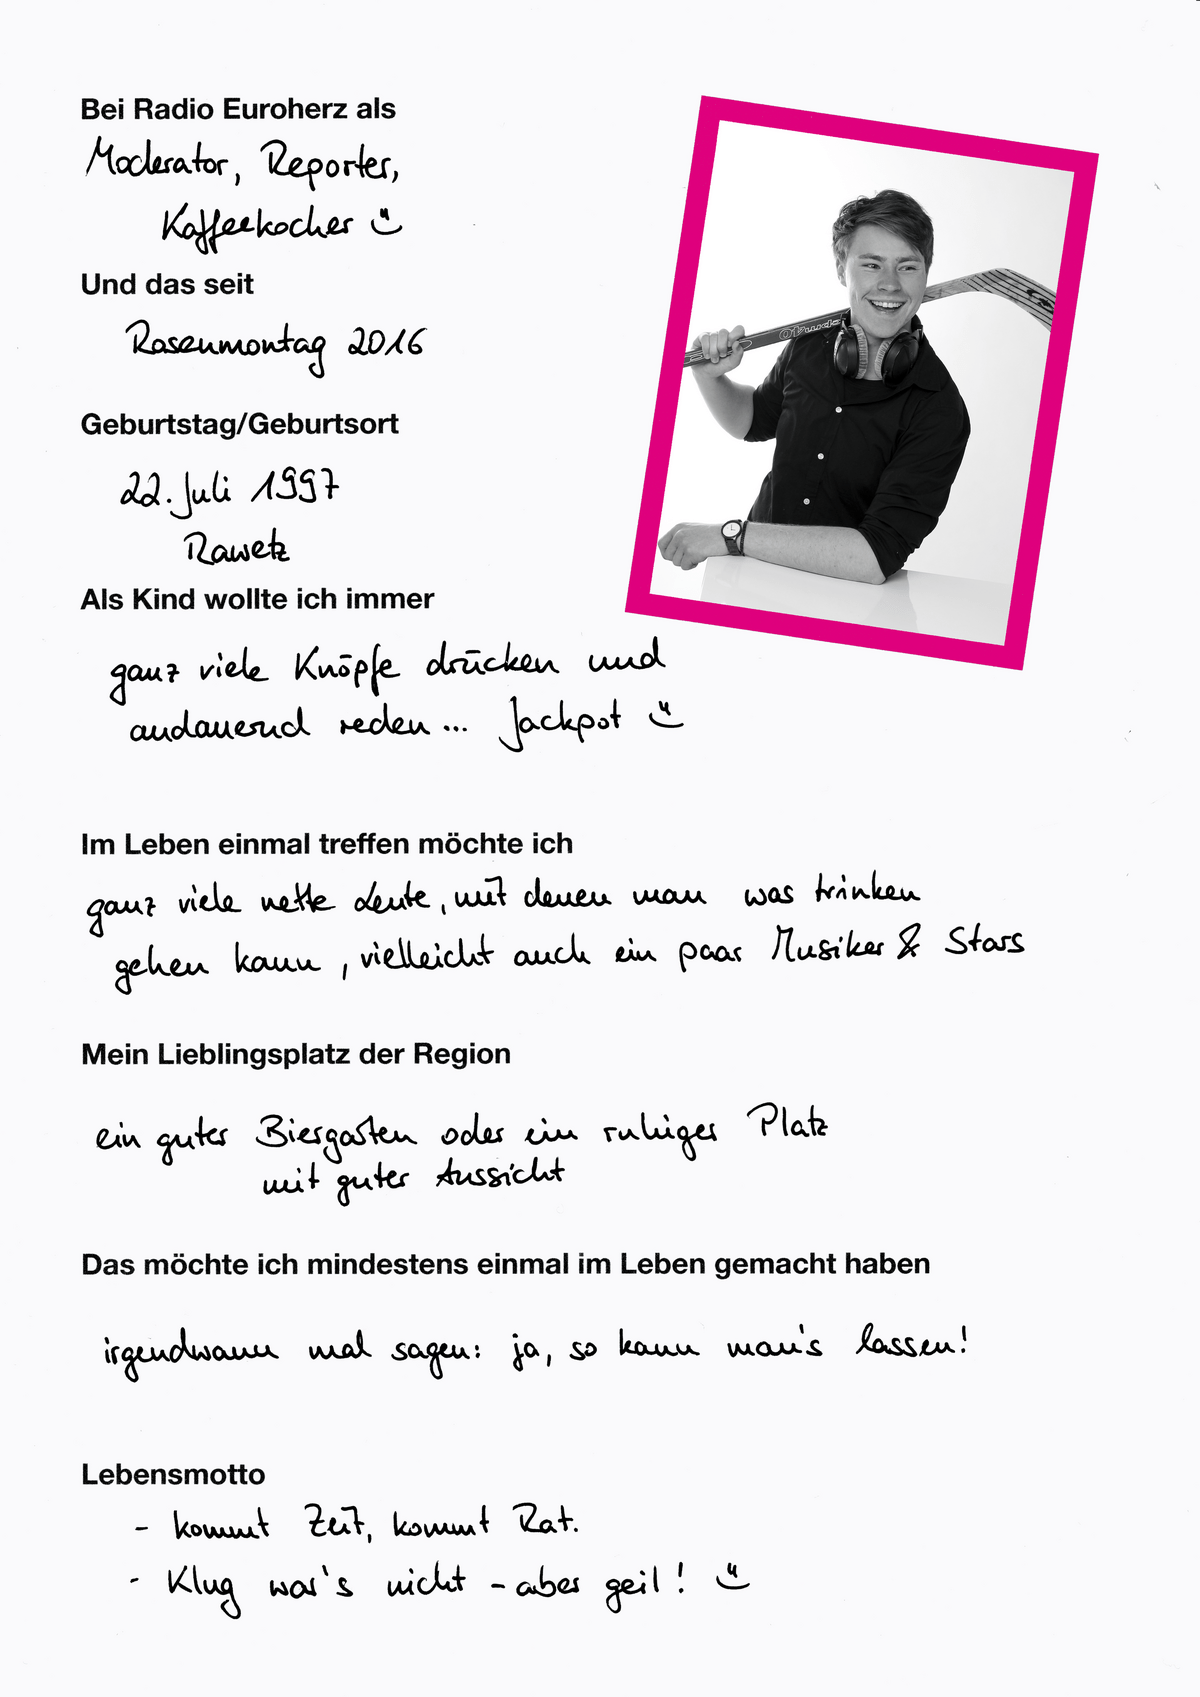 Bei Radio Euroherz als
Moderator, Reporter,
Kaffeekocher
Und das seit
Rosenmontag 2016
Geburtstag/Geburtsort
22. Juli 1997
Rawetz
Als Kind wollte ich immer
ganz viele Knöpfe drücken und
andauernd reden... Jackpot
Im Leben einmal treffen möchte ich
ganz viele nette Leute, mit denen man was trinken
gehen kann, vielleicht auch ein paar Musiker & Stars
Mein Lieblingsplatz der Region
ein guter Biergarten oder ein ruhiger Platz
mit guter Aussicht
Das möchte ich mindestens einmal im Leben gemacht haben
irgendwann mal sagen: ja, so kann man's lassen!
Lebensmotto
- kommt Zeit, kommt Rat.
- Klug war's nicht - aber geil!